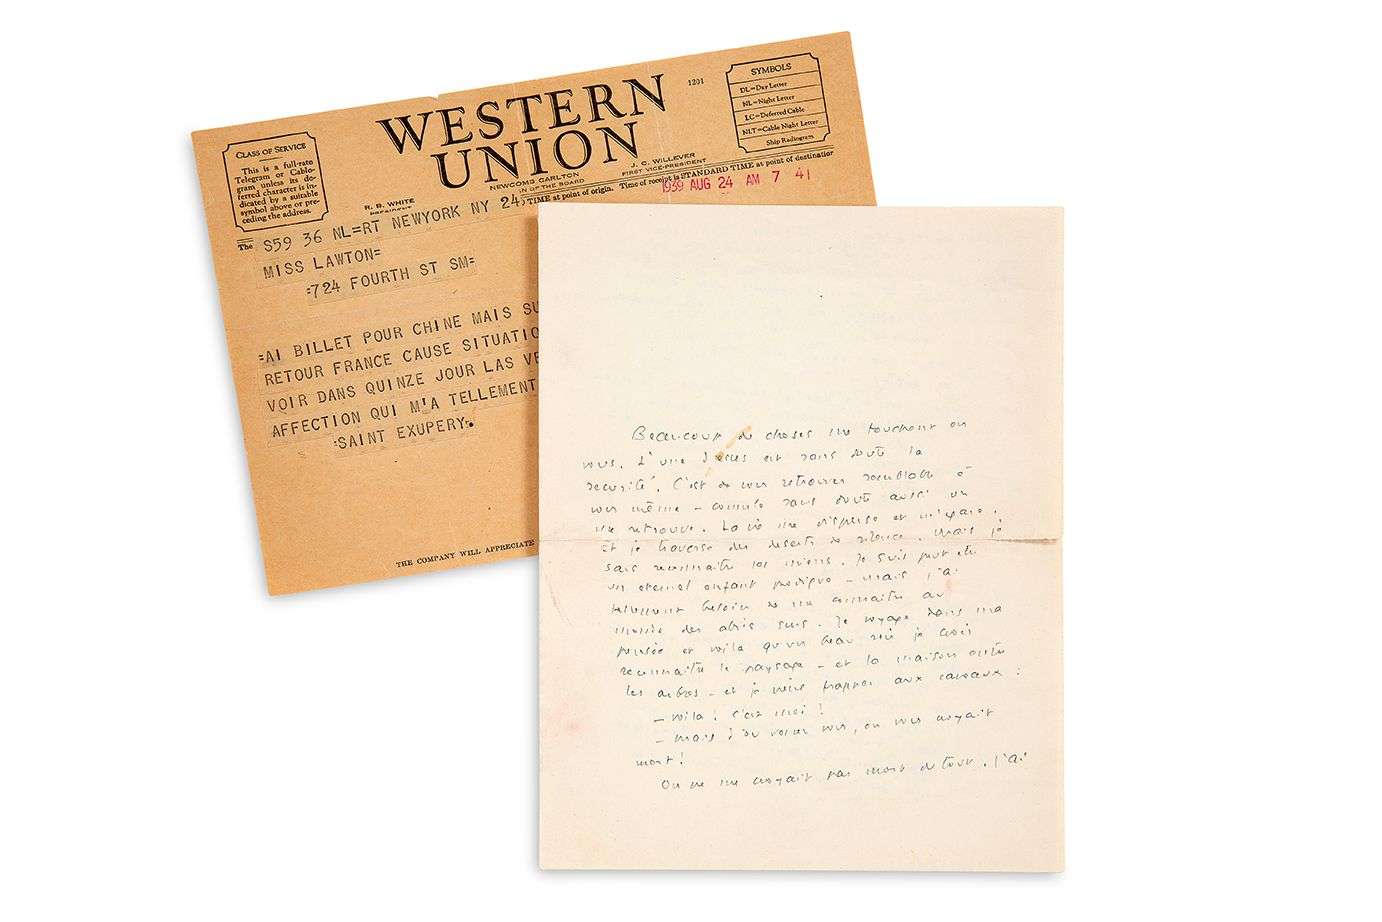 WESTERN
UNION
1201
CLASS OF SERVICE
This is a full-rate
Telegram or Cablo-
gram unless its de-
ferred character is in-
dicated by a suitable
symbol above or pre-
ceding the address.
SYMBOLS
DL=Day Letter
NL=Night Letter
LC=Deferred Cable
NLT=Cable Night Letter
Ship Radiogram
R. B. WHITE
PRESIDENT
NEWCOMB CARLTON
OF THE BOARD
J. C. WILLEVER
FIRST VICE-PRESIDENT
The
TIME at point of origin. Time of receipt is STANDARD TIME at point of destination
1939 AUG 24 AM 7 41
S59 36 NL=RT NEWYORK NY 24
MISS LAWTON=
=724 FOURTH ST SM=
=AI BILLET POUR CHINE MAIS SU
RETOUR FRANCE CAUSE SITUATIO
VOIR DANS QUINZE JOUR LAS VE
AFFECTION QUI M'A TELLEMENT
=SAINT EXUPERY.
THE COMPANY WILL APPRECIATE
Beaucoup de choses me touchent en
vous. L'une d'elles est sans doute la
securité. C'est de vous retrouver semblable à
vous même - comme sans doute aussi on
me retrouve. La vie me disperse et m'égare.
et je traverse des deserts de silence. Mais je
sais reconnaitre les miens. Je suis peut etre
un eternel enfant prodigue - mais j'ai
tellement besoin de me connaitre au
monde des abris surs. Je voyage dans ma
pensée et voila qu'un beau soir je crois
reconnaitre le paysage - et la maison entre
les arbres - et je viens frapper aux carreaux :
- voila ! c'est moi !
- mais d'ou venez vous, on vous croyait
mort !
On ne me croyait pas mort du tout. J'ai